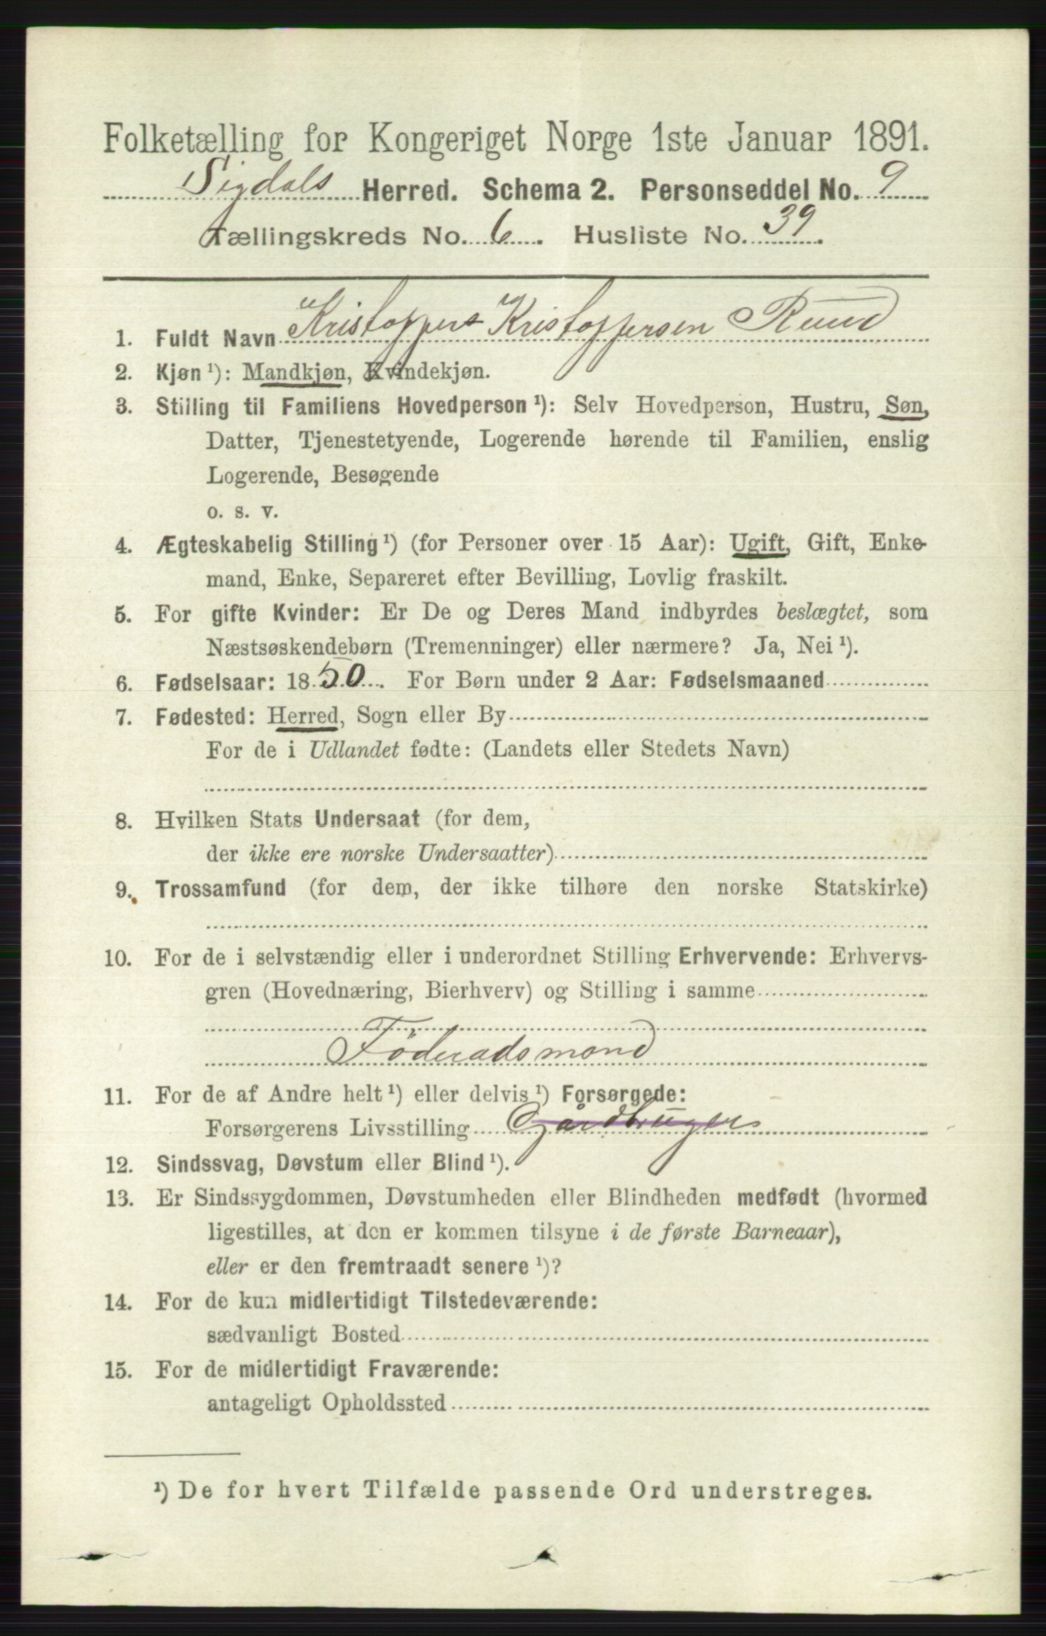 Folketælling for Kongeriget Norge 1ste Januar 1891.
Sigdals Herred. Schema 2. Personseddel No. 9
Tællingskreds No. 6. Husliste No. 39.
1. Fuldt Navn Kristoffers Kristoffersen Ruud
2. Kjøn ¹): Mandkjøn, Kvindekjøn.
3. Stilling til Familiens Hovedperson ¹): Selv Hovedperson, Hustru, Søn,
Datter, Tjenestetyende, Logerende hørende til Familien, enslig
Logerende, Besøgende
o. s. v.
4. Ægteskabelig Stilling ¹) (for Personer over 15 Aar): Ugift, Gift, Enke-
mand, Enke, Separeret efter Bevilling, Lovlig fraskilt.
5. For gifte Kvinder: Er De og Deres Mand indbyrdes beslægtet, som
Næstsøskendebørn (Tremenninger) eller nærmere? Ja, Nei ¹).
6. Fødselsaar: 1850. For Børn under 2 Aar: Fødselsmaaned
7. Fødested: Herred, Sogn eller By
For de i Udlandet fødte: (Landets eller Stedets Navn)
8. Hvilken Stats Undersaat (for dem,
der ikke ere norske Undersaatter)
9. Trossamfund (for dem, der ikke tilhøre den norske Statskirke)
10. For de i selvstændig eller i underordnet Stilling Erhvervende: Erhvervs-
gren (Hovednæring, Bierhverv) og Stilling i samme
Föderadsmand
11. For de af Andre helt ¹) eller delvis ¹) Forsørgede:
Forsørgerens Livsstilling Gårdbrugers
12. Sindssvag, Døvstum eller Blind ¹).
13. Er Sindssygdommen, Døvstumheden eller Blindheden medfødt (hvormed
ligestilles, at den er kommen tilsyne i de første Barneaar),
eller er den fremtraadt senere ¹)?
14. For de kun midlertidigt Tilstedeværende:
sædvanligt Bosted
15. For de midlertidigt Fraværende:
antageligt Opholdssted
¹) De for hvert Tilfælde passende Ord understreges.